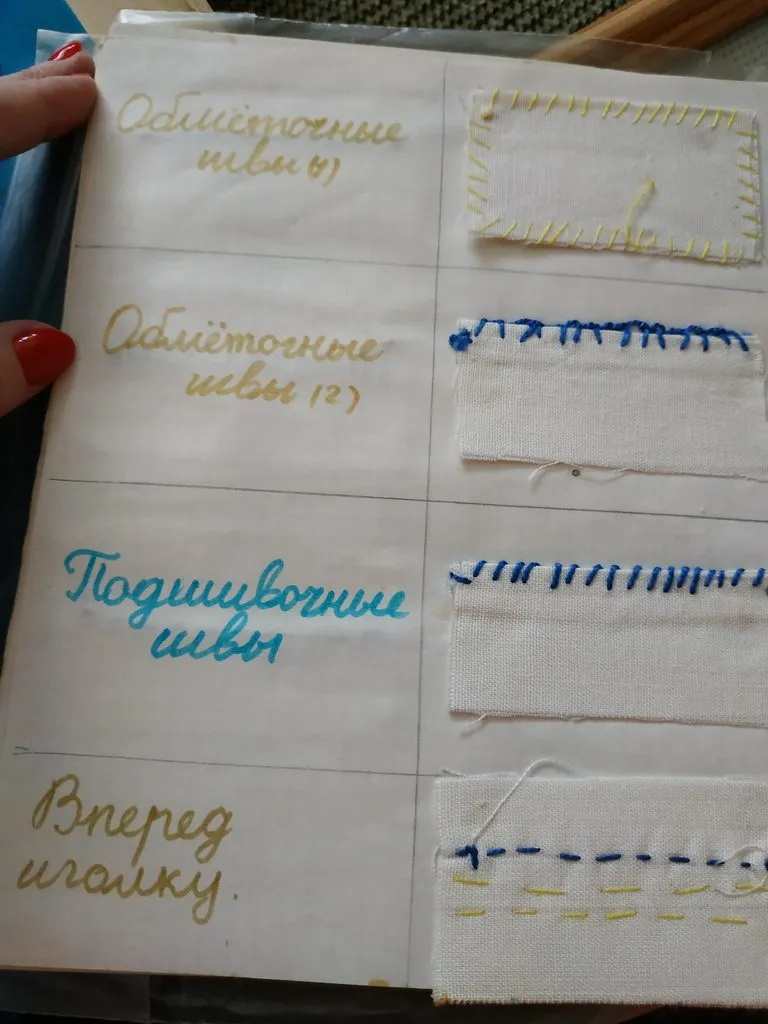 Обмёточные
швы 1)
Обмёточные
швы (2)
Подшивочные
швы
Вперед
иголку.